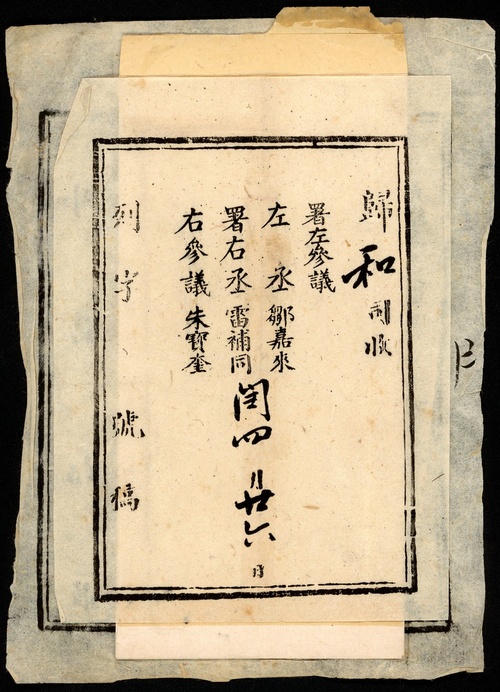 歸和司收
署左參議
左丞鄒嘉來
署右丞雷補同
閏四月廿六日
右參議朱寶奎
列字號稿